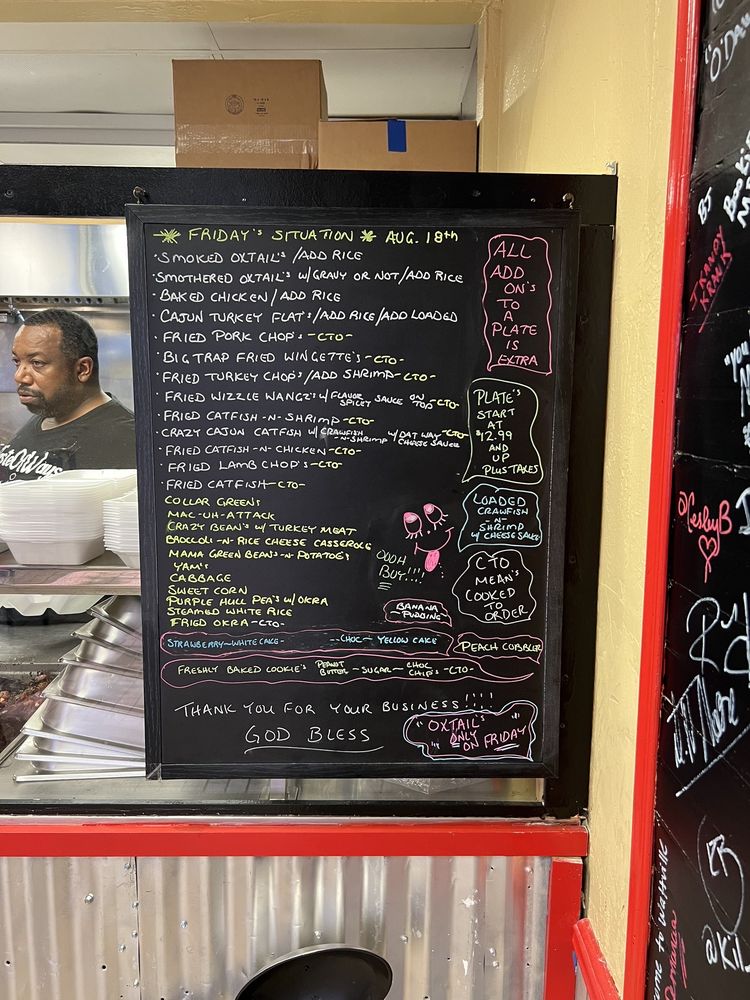 ✳ FRIDAY'S SITUATION ✳ AUG. 18th
·SMOKED OXTAIL'S /ADD RICE
·SMOTHERED OXTAIL'S W/GRAVY OR NOT/ADD RICE
·BAKED CHICKEN/ADD RICE
·CAJUN TURKEY FLAT'S/ADD RICE/ADD LOADED
·FRIED PORK CHOP'S -CTO-
·BIG TRAP FRIED WINGETTE'S -CTO-
·FRIED TURKEY CHOP'S/ADD SHRIMP-CTO-
·FRIED WIZZLE WANGZ'S W/FLAVOR SPICEY SAUCE ON TOP -CTO-
·FRIED CATFISH-N-SHRIMP-CTO
·CRAZY CAJUN CATFISH W/CRAWFISH -N-SHRIMP W/DAT WAY CHEESE SAUCE -CTO
·FRIED CATFISH-N-CHICKEN-CTO-
·FRIED LAMB CHOP'S-CTO-
·FRIED CATFISH-CTO-
COLLAR GREEN'S
MAC-UH-ATTACK
CRAZY BEAN'S W/ TURKEY MEAT
BROCCOLI-N-RICE CHEESE CASSEROLE
MAMA GREEN BEAN'S-N-POTATOE'S
YAM'S
CABBAGE
SWEET CORN
PURPLE HULL PEA'S W/OKRA
STEAMED WHITE RICE
FRIED OKRA-CTO-
ALL
ADD
ON'S
TO
A
PLATE
IS
EXTRA
PLATE'S
START
AT
$12.99
AND
UP
PLUS TAXES
LOADED
CRAWFISH
-N-
SHRIMP
W/CHEESE SAUCE
CTO
MEAN'S
COOKED
TO
ORDER
OOOH
BUY!!!
BANANA
PUDDING
STRAWBERRY-WHITE CAKE- --CHOC- YELLOW CAKE
PEACH COBBLER
FRESHLY BAKED COOKIE'S PEANUT BUTTER -SUGAR- CHOC CHIP'S -CTO-
THANK YOU FOR YOUR BUSINESS!!!!
GOD BLESS
"OXTAIL'S
ONLY
ON FRIDAY"
"O'DA
BT
@LesbyB